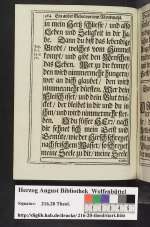 184 Ein ander Gebet um das Abendmahl.
in mein Hertz schliesse / und also
Leben und Seligkeit in dir ha-
be. Dann du bist das lebendige
Brodt / welches vom Himmel
kommt / und gibt den Menschen
das Leben. Wer zu dir kompt /
den wird nimmermehr hungern /
wer an dich glaubet / den wird
nimmermehr dürsten. Wer dein
Fleisch isset / und dein Blut trin-
cket / der bleibet in dir und du in
ihm / und wird nimmermehr ster-
ben. O du süsser HErr / nach
dir sehnet sich mein Geist und
Gemüte / wie der Hirsch schreyet
nach frischem Wasser / so schreyet
meine Seele zu dir / meine Seele
Herzog August Bibliothek Wolfenbüttel
Signatur: 216.20 Theol.
http://diglib.hab.de/drucke/216-20-theol/start.htm